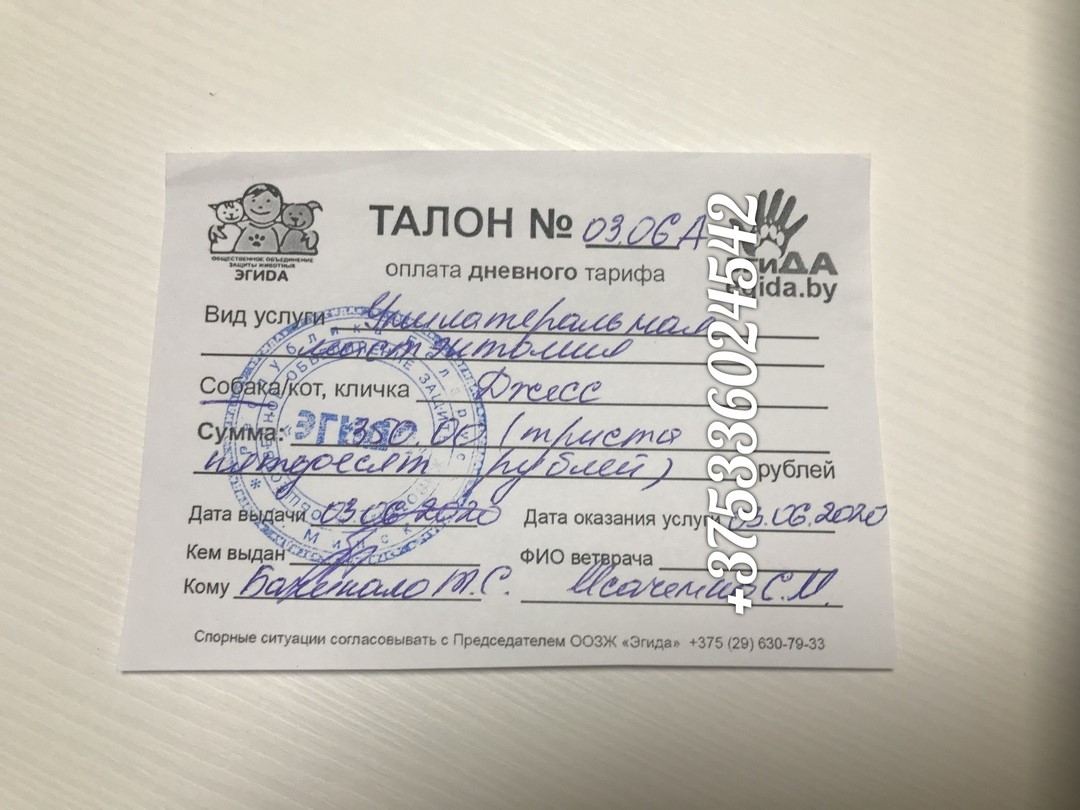 ОБЩЕСТВЕННОЕ ОБЪЕДИНЕНИЕ
ЗАЩИТЫ ЖИВОТНЫХ
ЭГИДА
ТАЛОН № 03.06 А
оплата дневного тарифа
ЭгиДА
egida.by
Вид услуги Унилатеральная
мастэктомия
Собака/кот, кличка Джесс
Сумма: 350.00 (триста
пятьдесят рублей) рублей
Дата выдачи 03.06.2020 Дата оказания услуги 03.06.2020
Кем выдан ФИО ветврача
Кому Т.С. С.М.
Спорные ситуации согласовывать с Председателем ООЗЖ «Эгида» +375 (29) 630-79-33
ЭГИДА
Минск
+375336024542